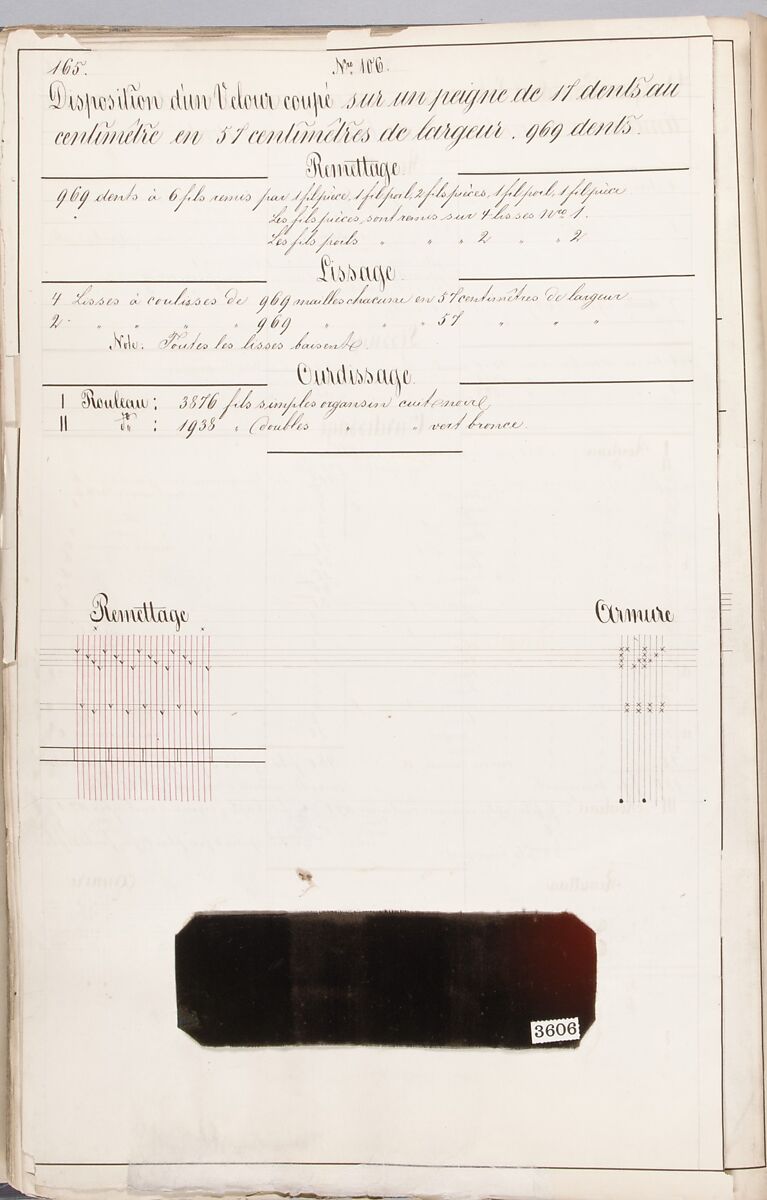 165.
Nro 106.
Disposition d'un Velour coupé sur un peigne de 17 dents au
centimètre en 57 centimètres de largeur. 969 dents.
Remettage.
969 dents à 6 fils remis par 1 fil pièce, 1 fil poil, 2 fils pièces, 1 fil poil, 1 fil pièce
Les fils pièces, sont remis sur 4 lisses Nro 1.
Les fils poils " " " 2 " " 2
Lissage.
4 Lisses à coulisses de 969 mailles chacune en 57 centimètres de largeur
2 " " " " 969 " " " 57 " " "
Note: Toutes les lisses baisent
Ourdissage.
I Rouleau: 3876 fils simples organsin cuit noir
II do : 1938 " doubles " " vert bronce.
Remettage
Armure
3606